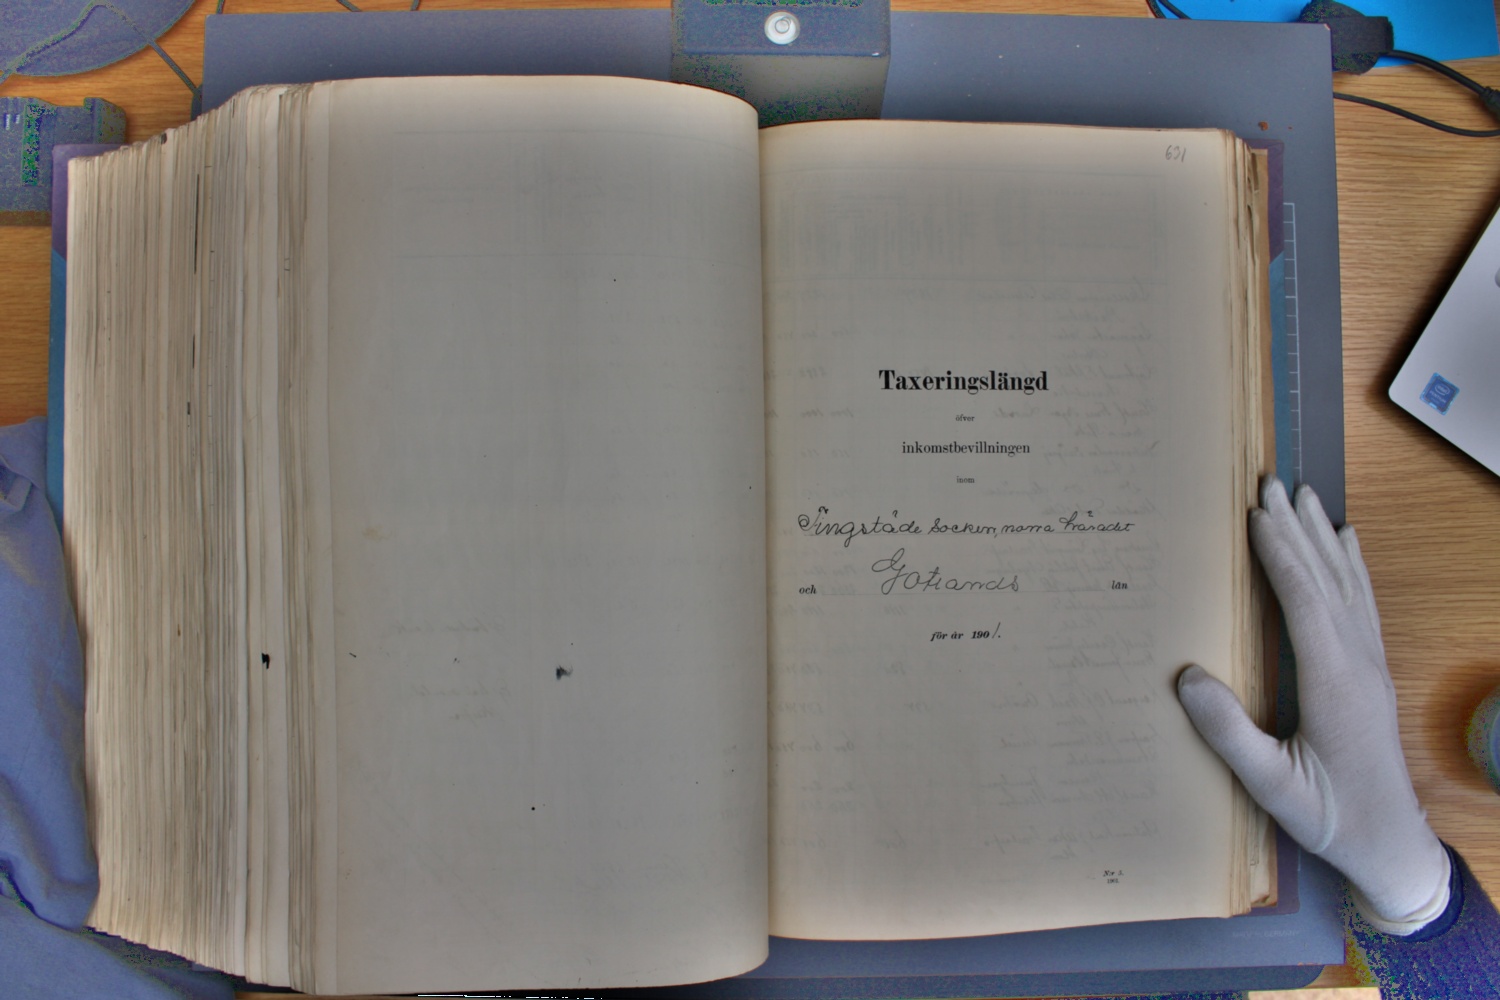 631
Taxeringslängd
öfver
inkomstbevillningen
inom
Tingstäde Socken, norra häradet
och Gotlands län
för år 1901.
N:r 3.